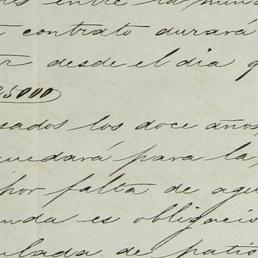 entre la
contrato durará
desde el dia q
25000
sados los doce años
uedará para la
por falta de agu
nda es obligacio
ulada de patio